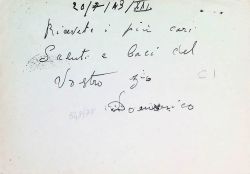 20/7/43/XXI
Ricevete i più cari
Saluti e baci dal
Vostro zio
Domenico